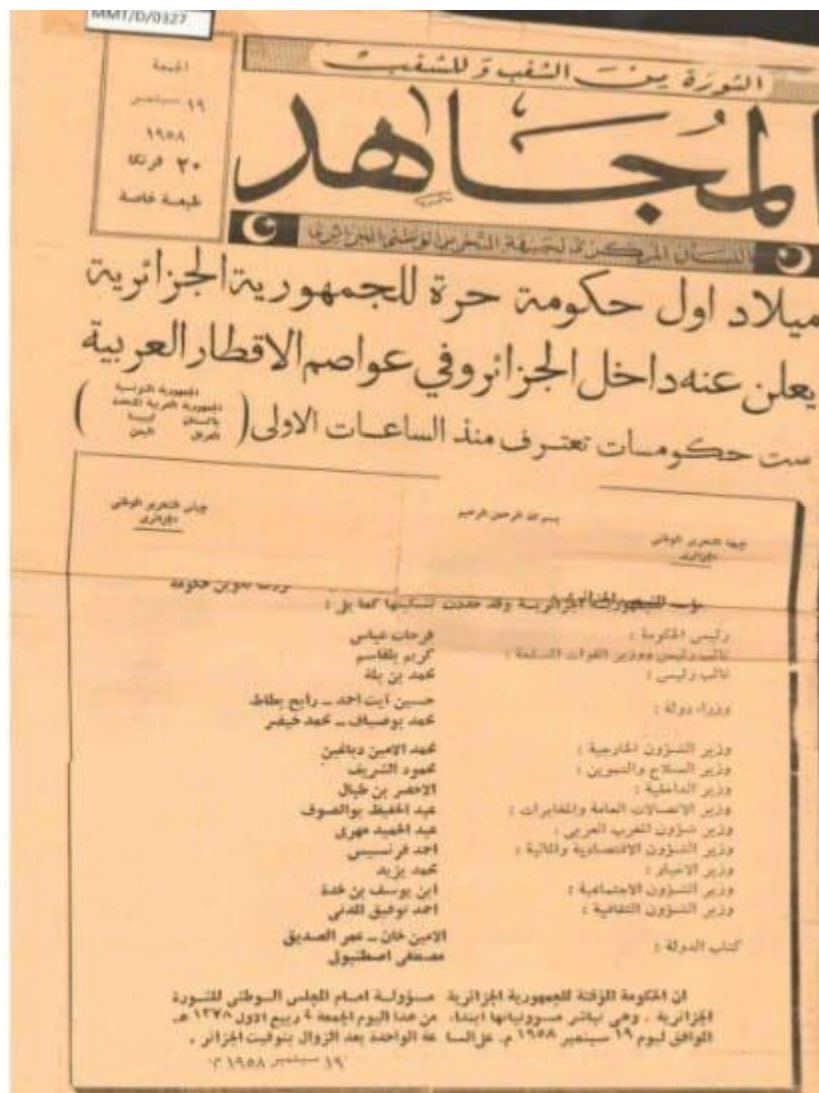 MMT/D/0327
الثورة من الشعب و للشعب
الجمعة
١٩ سبتمبر
١٩٥٨
٢٠ فرنكا
طبعة خاصة
المجاهد
اللسان المركزي لجبهة التحرير الوطني الجزائري
ميلاد اول حكومة حرة للجمهورية الجزائرية
يعلن عنه داخل الجزائر وفي عواصم الاقطار العربية
ست حكومات تعترف منذ الساعات الاولى
(الجمهورية التونسية
الجمهورية العربية المتحدة
باكستان ليبيا
العراق اليمن)
جبهة التحرير الوطني
الجزائري
بسم الله الرحمن الرحيم
جيش التحرير الوطني
الجزائري
حكومة
الجزائرية وقد حددت تشكيلتها كما يلي :
رئيس الحكومة : فرحات عباس
نائب رئيس ووزير القوات المسلحة : كريم بلقاسم
نائب رئيس : محمد بن بلة
وزراء دولة : حسين ايت احمد ــ رابح بطاط
محمد بوضياف ــ محمد خيضر
وزير الشؤون الخارجية : محمد الامين دباغين
وزير السلاح والتموين : محمود الشريف
وزير الداخلية : الاخضر بن طبال
وزير الاتصالات العامة والمخابرات : عبد الحفيظ بوالصوف
وزير شؤون المغرب العربي : عبد الحميد مهري
وزير الشؤون الاقتصادية والمالية : احمد فرنسيس
وزير الاخبار : محمد يزيد
وزير الشؤون الاجتماعية : ابن يوسف بن خدة
وزير الشؤون الثقافية : احمد توفيق المدني
كتاب الدولة : الامين خان ــ عمر الصديق
مصطفى اصطنبولي
ان الحكومة المؤقتة للجمهورية الجزائرية مسؤولة امام المجلس الوطني للثورة
الجزائرية . وهي تباشر مسؤولياتها ابتداء من هذا اليوم الجمعة ٤ ربيع الاول ١٣٧٨ هـ.
الموافق ليوم ١٩ سبتمبر ١٩٥٨ م. على الساعة الواحدة بعد الزوال بتوقيت الجزائر .
١٩ سبتمبر ١٩٥٨ م.